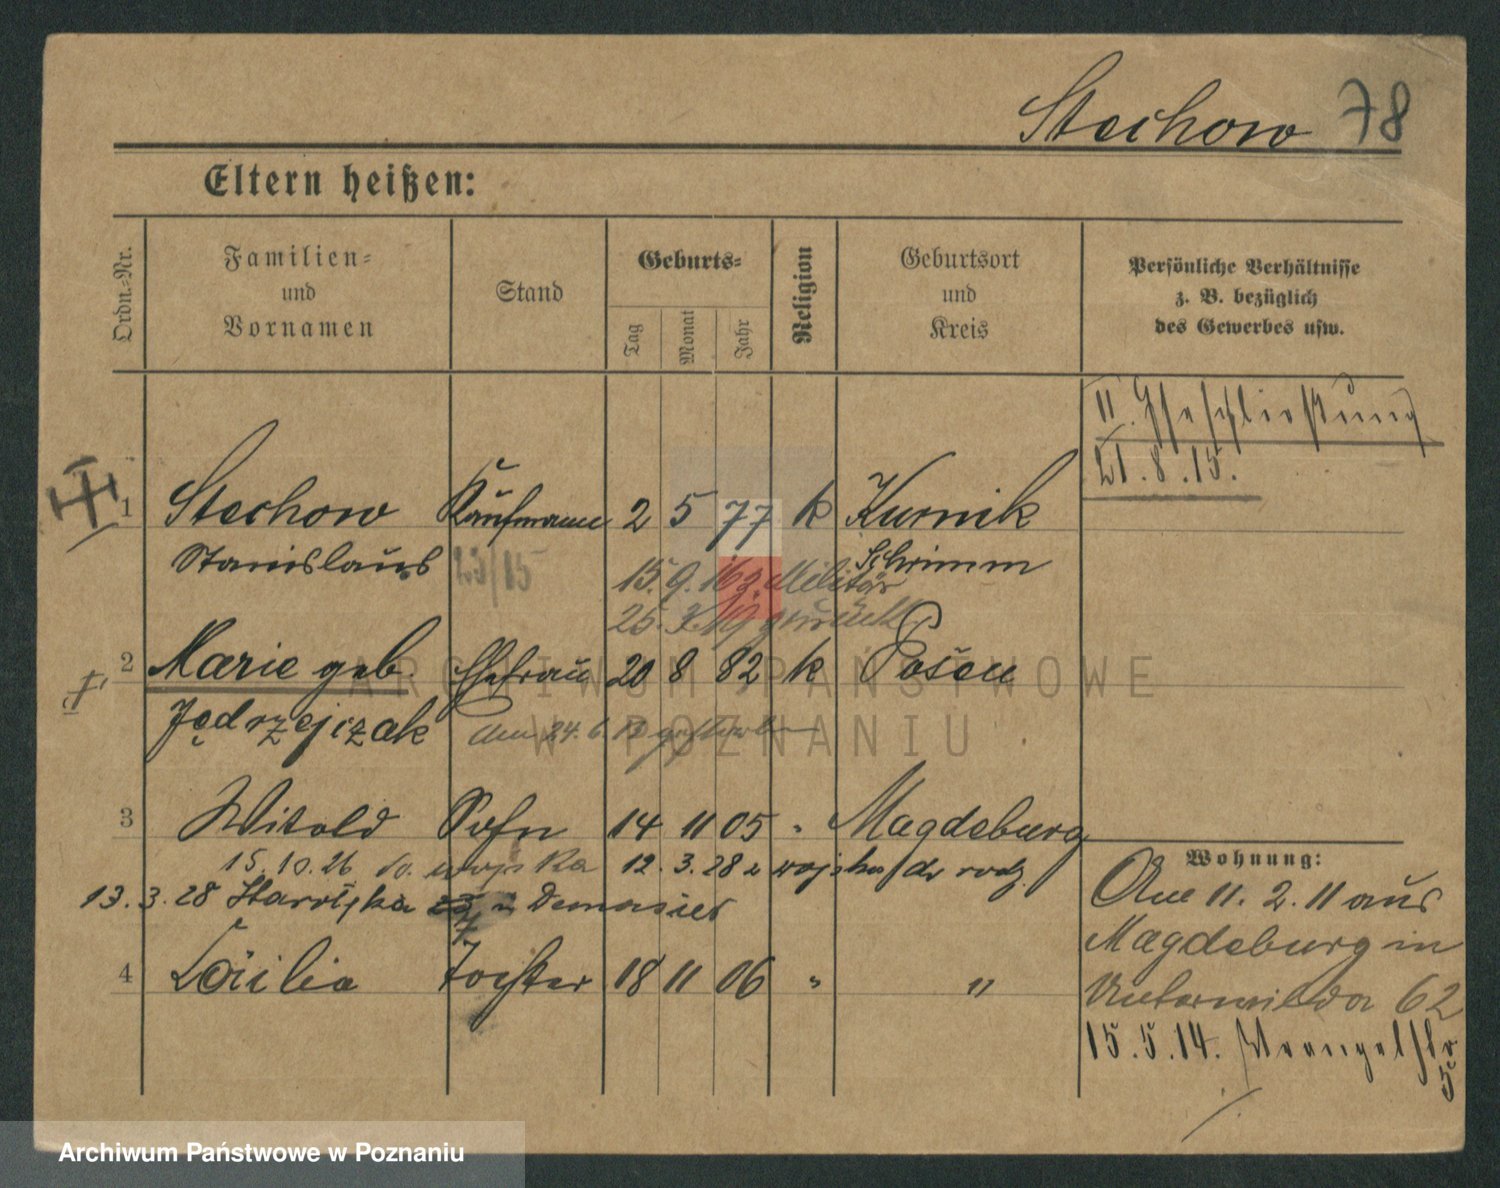 Stechow 78
Eltern heißen:
Ordn.-Nr.
Familien- und Vornamen
Stand
Geburts-
Tag Monat Jahr
Religion
Geburtsort und Kreis
Persönliche Verhältnisse z. B. bezüglich des Gewerbes usw.
II. Eheschließung
21.8.15.
1 Stechow Kaufmann 2 5 77 k Kurnik
Stanislaus 23/15 Schrimm
15.9.16 z. Militär
25. zurück
2 Marie geb. Ehefrau 20 8 82 k Posen
Jędrzejczak am 24.6. gestorben
3 Witold Sohn 14 11 05 " Magdeburg
15.10.26 do wojska 12.3.28 z wojska do rodz.
13.3.28 Starołęka
4 Cäcilia Tochter 18 11 06 " "
Wohnung:
Am 11.2.11 aus
Magdeburg in
Unterwilda 62
15.5.14. Wrangelstr
5
ARCHIWUM PAŃSTWOWE
W POZNANIU
Archiwum Państwowe w Poznaniu